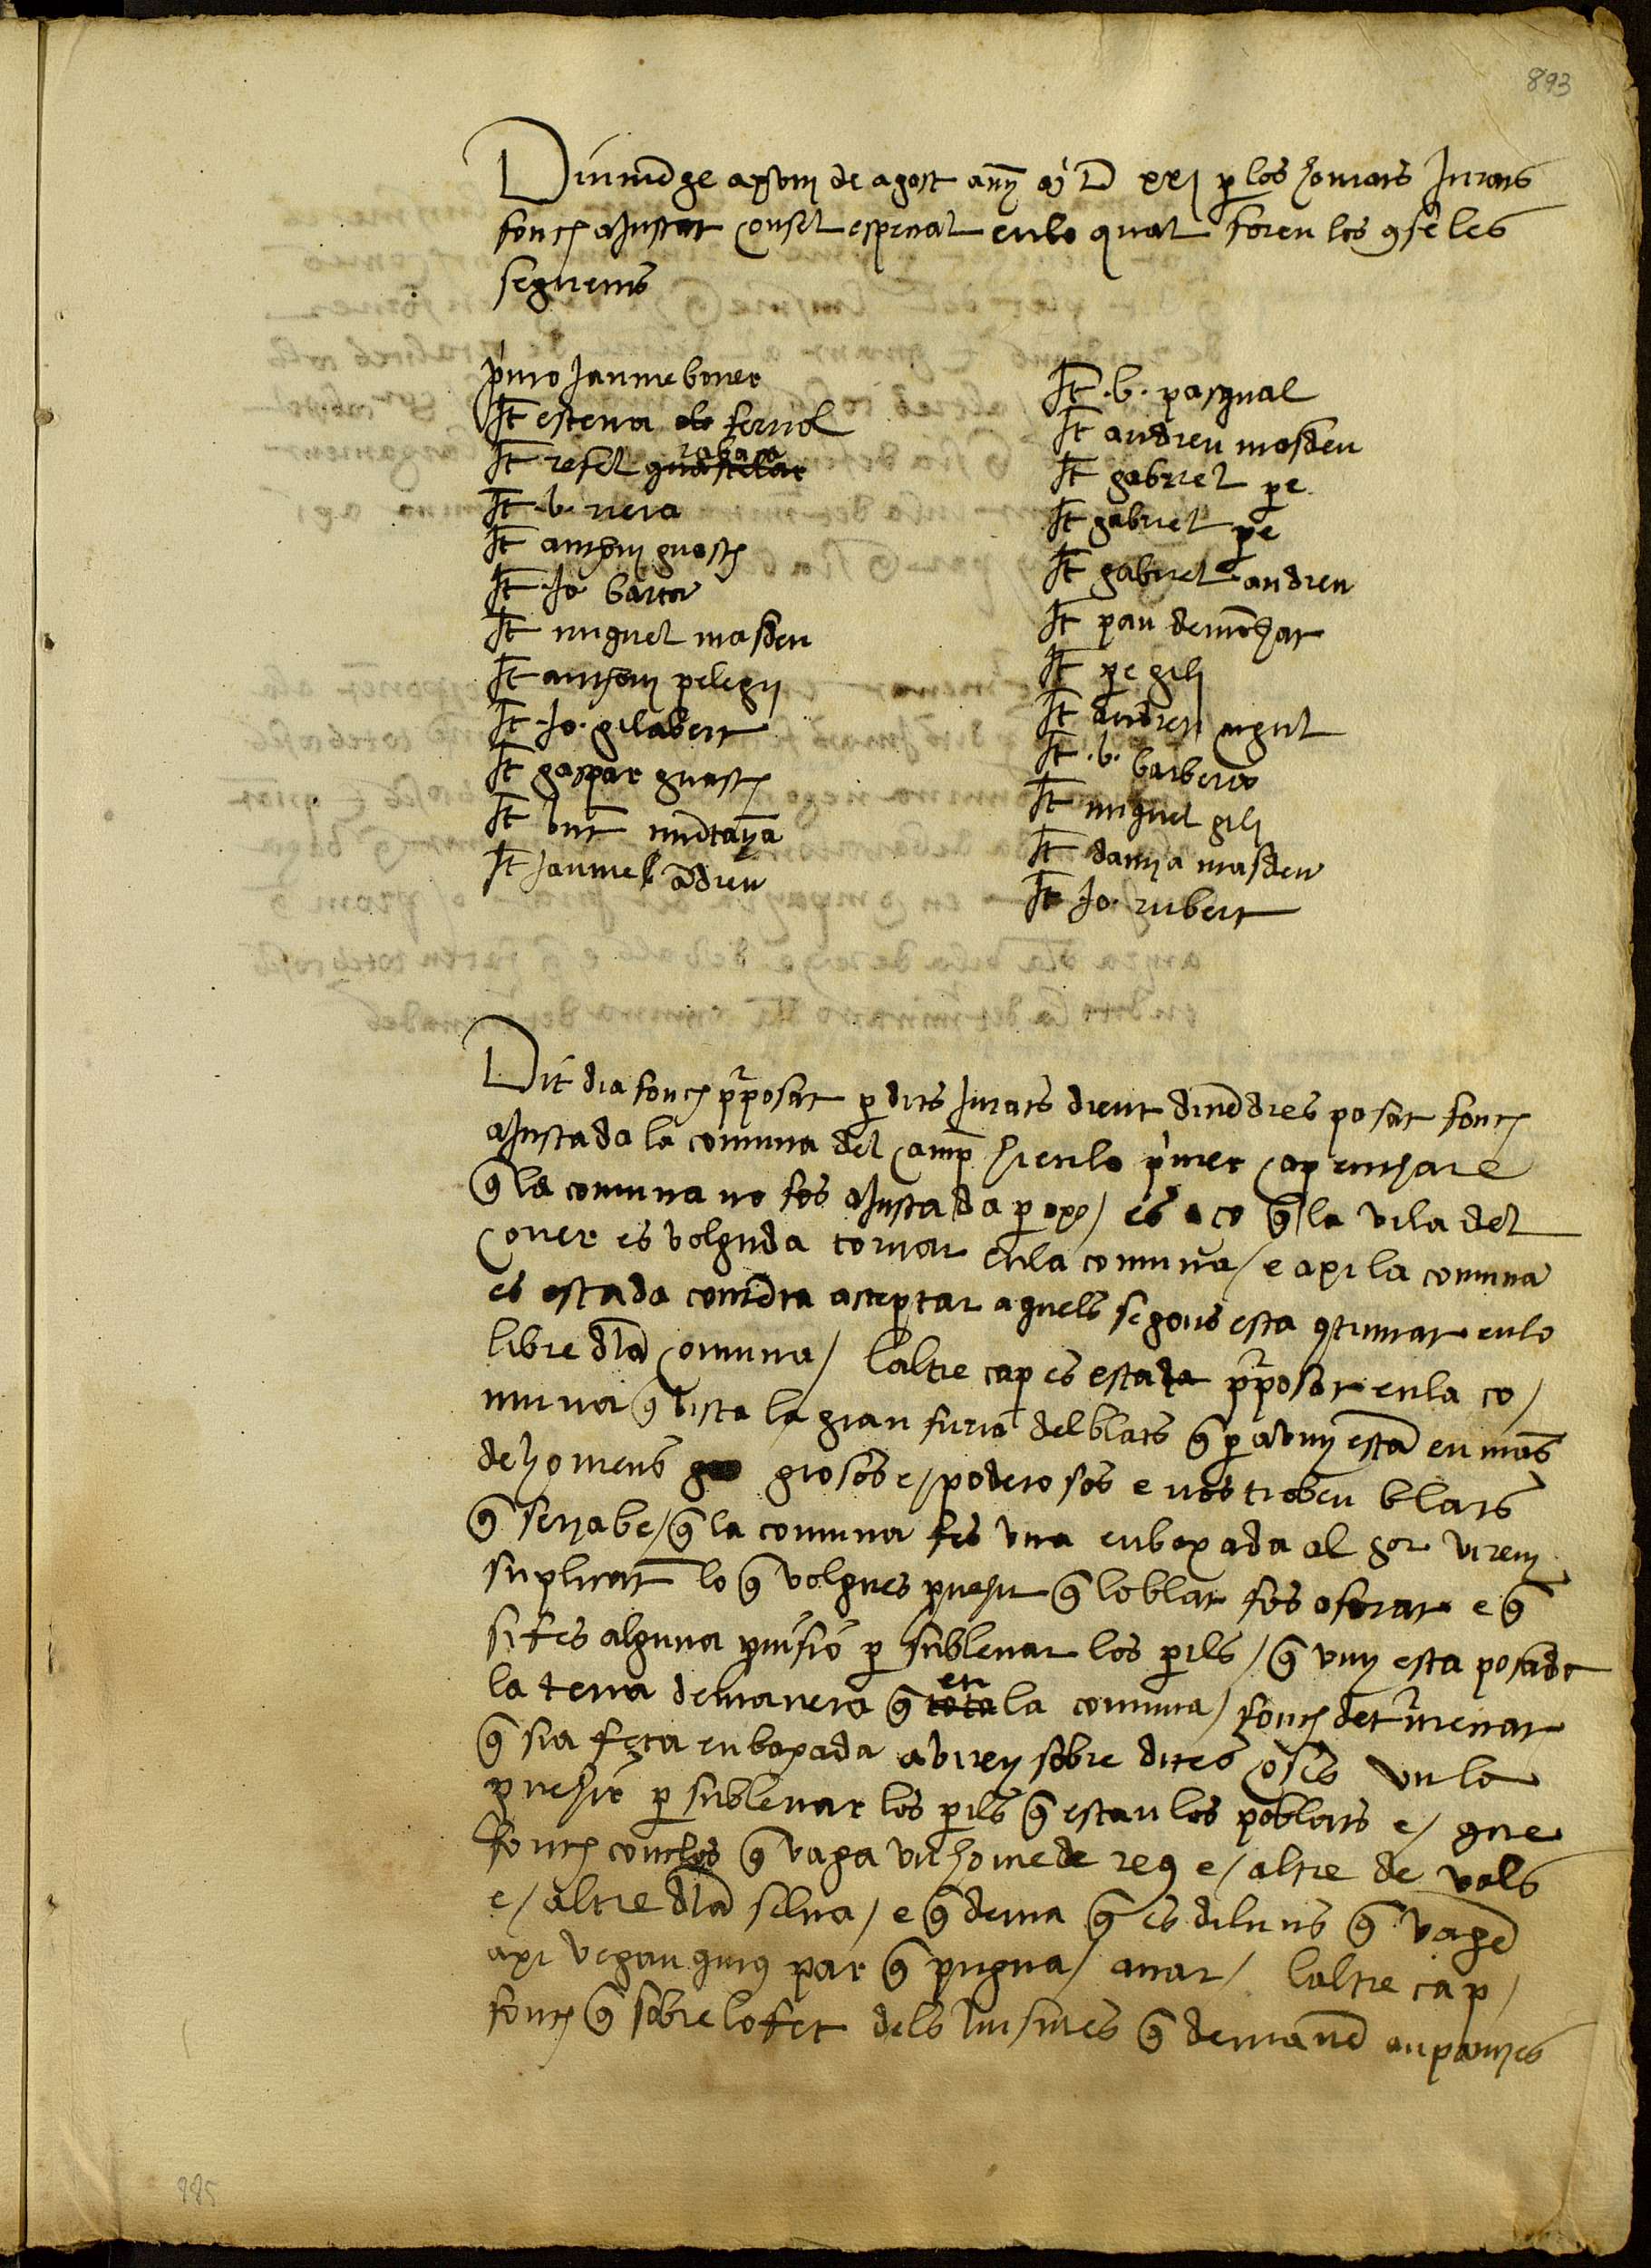 893
Diume͂ge a xviij de agost any M D xxj p̱ los honrats Jurats
fonch aJustat consel espesial en lo qual foren los ꝯselés
seguens
primo Jaume boner
It esteva ferrol
It rafel rabaça
It .b. riera
It anthoni guasch
It Jo barta
It miguel masdeu
It anthoni pelegri
It Jo. gilabert
It gaspar guasch
It vinc͂t munta͂ya
It Jaume a͂dreu
It .b. pasqual
It andreu masdeu
It gabriel pe̱
It gabriel pe̱
It gabriel andreu
It pau demo͂hat
It pe̱ gili
It andreu
It .b. barbera
It miguel gili
It damia masdeu
It Jo. rubert
Dit dia fonch pposat p̱ dits Jurats dient dive͂dres posat fonch
aJustada la comuna del camp hi en lo primer cap en
q̃ la comuna no fos aJustada p̱ / es aço q̃ la vila del
es volguda tornar en la comuna / e axi la comuna
es estada conte͂ta aceptar aquels segons esta ꝯtinuat en lo
libre dla͂ comuna / laltre cap es estada pposat en la co /
muna q̃ vista la gran furia delblats q̃ p̱ avuy esta͂ en ma͂s
de homens grosos e / poderosos e nos troben blats
q̃ seria be / q̃ la comuna fes una enbaxada al Sor virey
suplicant lo q̃ volgues pvehir q̃ lo blat fos aforat e q̃
si fes alguna pvisio p̱ sublevar los pe̱ls / q̃ vuy esta posade
la terra de manera q̃ en la comuna / fonch detrmenat
q̃ sia feta enbaxada a virey sobre dites coses vulla
pvehir p̱ sublevar los pe̱ls q̃ estan los poblats e / que
fonch conclos q̃ vaga un home de reus e / altre de vals
e / altre dla͂ selva / e q̃ dema q̃ es diluns q̃ vage͂
axi vegau quius par q̃ puguа / anar / laltre cap /
fonch q̃ sobre lo fet dels q̃ demane͂
885